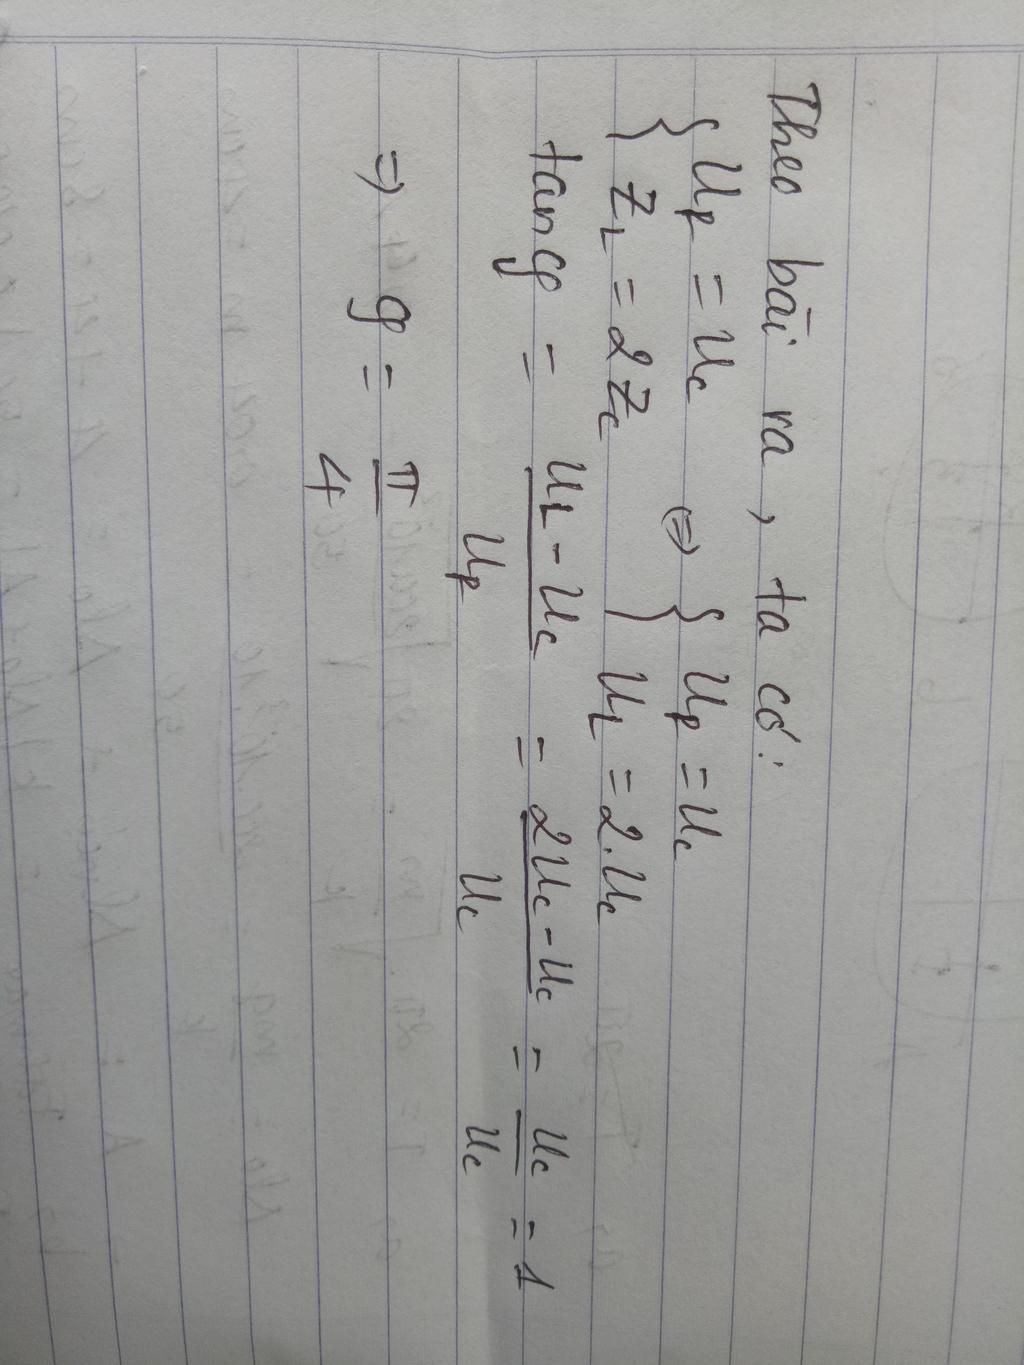 Theo bài ra, ta có:
{ U_R = U_C
Z_L = 2Z_C ⇔ { U_R = U_C
U_L = 2.U_C
tanφ = (U_L - U_C)/U_R = (2U_C - U_C)/U_C = U_C/U_C = 1
⇒ φ = π/4